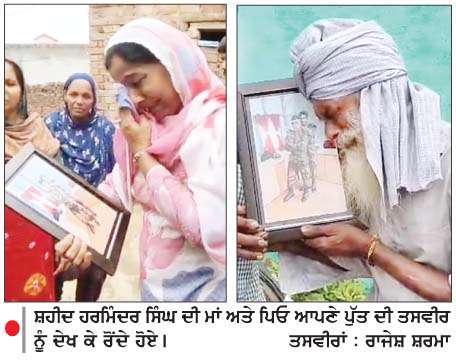 ਸ਼ਹੀਦ ਹਰਮਿੰਦਰ ਸਿੰਘ ਦੀ ਮਾਂ ਅਤੇ ਪਿਓ ਆਪਣੇ ਪੁੱਤ ਦੀ ਤਸਵੀਰ
ਨੂੰ ਦੇਖ ਕੇ ਰੋਂਦੇ ਹੋਏ। ਤਸਵੀਰਾਂ : ਰਾਜੇਸ਼ ਸ਼ਰਮਾ